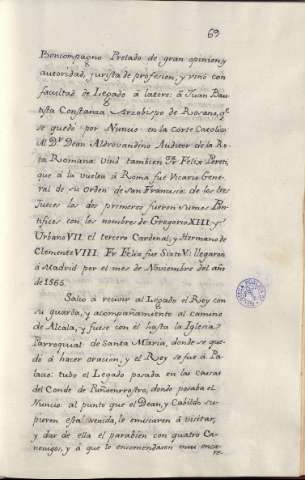 69
Boncompagno Prelado de gran opinion y
autoridad, jurista de profesion, y vino con
facultad de Legado á latere: á Juan Bau-
tista Constanza Arzobispo de Rosano, q.e
se quedó por Nuncio en la Corte Catolica
Al D.r Dean Aldrovandino Auditor de la Ro-
ta Romana. Vino tambien Fr. Felix Pereti,
que á la vuelta á Roma fue Vicario Gene-
ral de su Orden de San Francisco: de los tres
Jueces los dos primeros fueron Sumos Pon-
tifices con los nombres de Gregorio XIII. y
Urbano VII. el tercero Cardenal, y Hermano de
Clemente VIII. Fr. Felix fue Sixto V. llegaron
á Madrid por el mes de Noviembre del año
de 1565.
Salió á recivir al Legado el Rey con
su guarda, y acompañamento al camino
de Alcala, y fuese con el hasta la Iglesia
Parroquial de Santa Maria, donde se que-
dó á hacer oracion, y el Rey se fue á Pa-
lacio: tubo el Legado posada en las casas
del Conde de Puñonrostro, donde posaba el
Nuncio: al punto que el Dean y Cabildo su-
pieron esta venida, le enviaron á visitar,
y dar de ella el parabien con quatro Ca-
nonigos, y á que le encomendasen muy enca-
re-